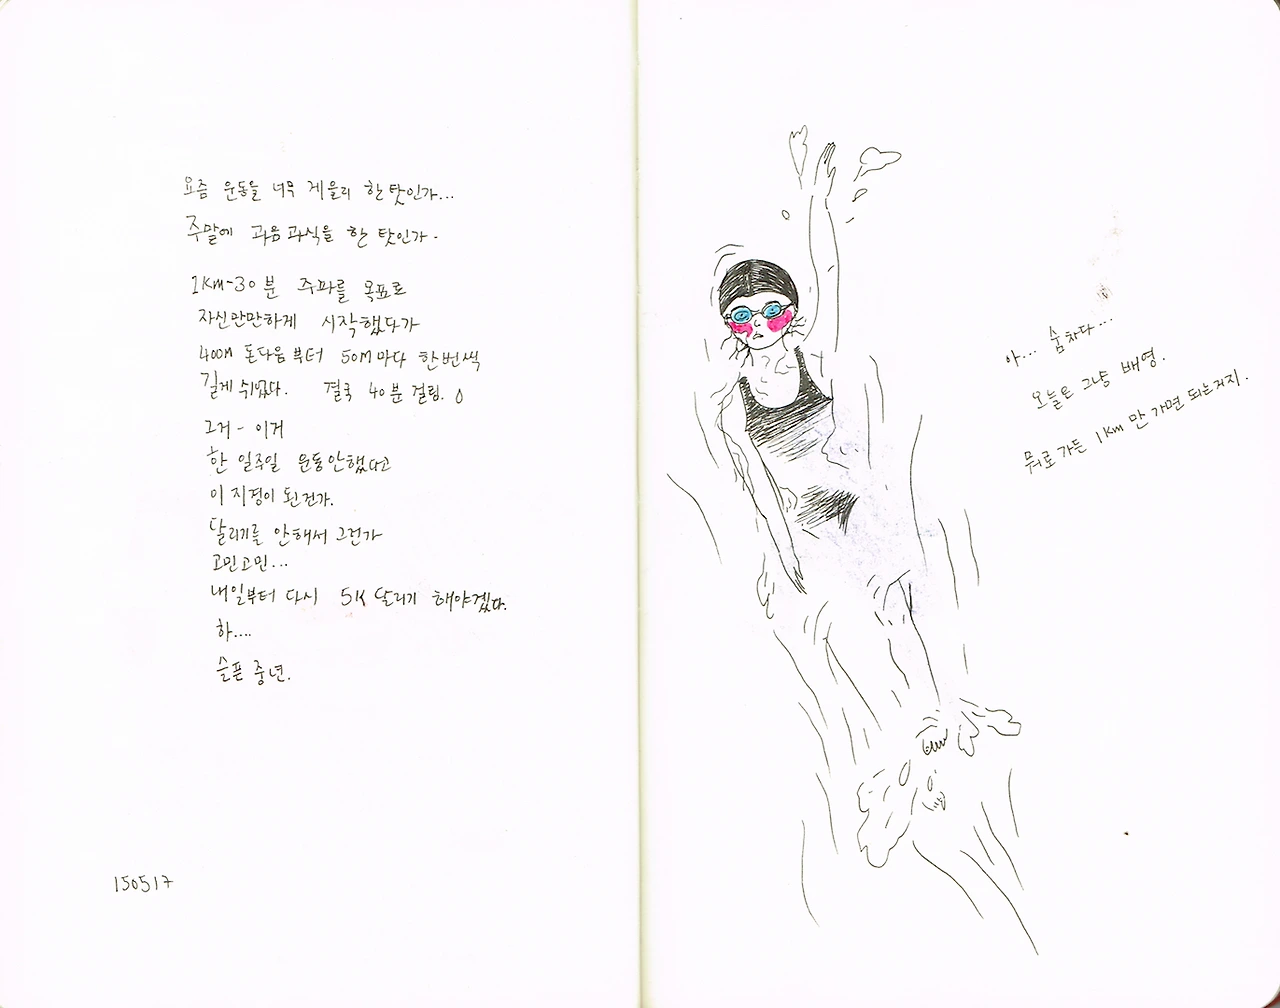 요즘 운동을 너무 게을리 한 탓인가...
주말에 과음 과식을 한 탓인가.
1Km-30분 주파를 목표로
자신만만하게 시작했다가
400M 돈다음부터 50M마다 한번씩
길게 쉬었다. 결국 40분 걸림.
그거 - 이거
한 일주일 운동안했다고
이 지경이 된건가.
달리기를 안해서 그런가
고민고민...
내일부터 다시 5K 달리기 해야겠다.
하....
슬픈 중년.
150517
아... 숨차다...
오늘은 그냥 배영.
뭐로 가든 1Km 만 가면 되는거지.